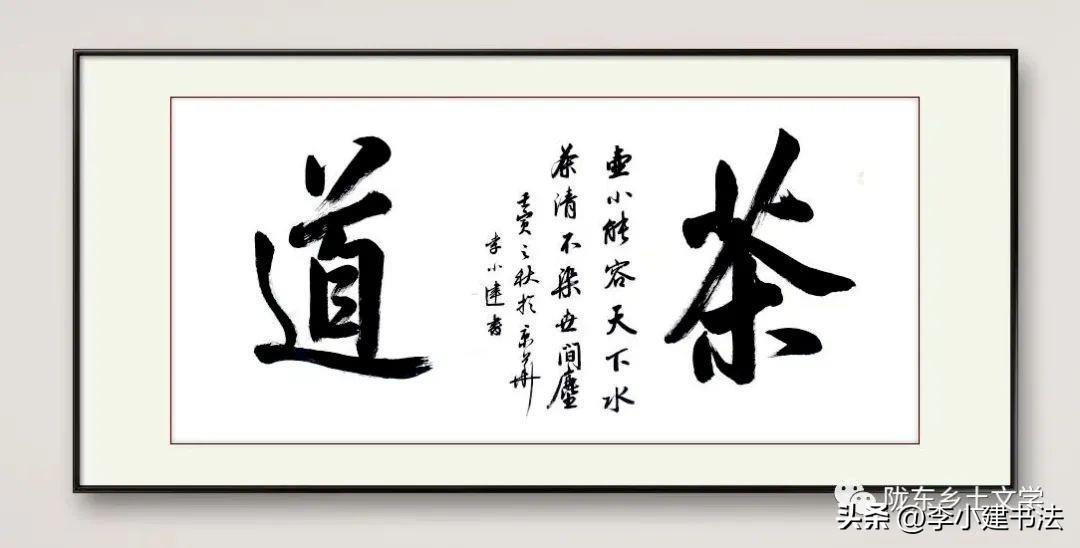 茶
壶小能容天下水
茶清不染世间尘
壬寅之秋于京华
李小建书
道
陇东乡土文学
头条@李小建书法